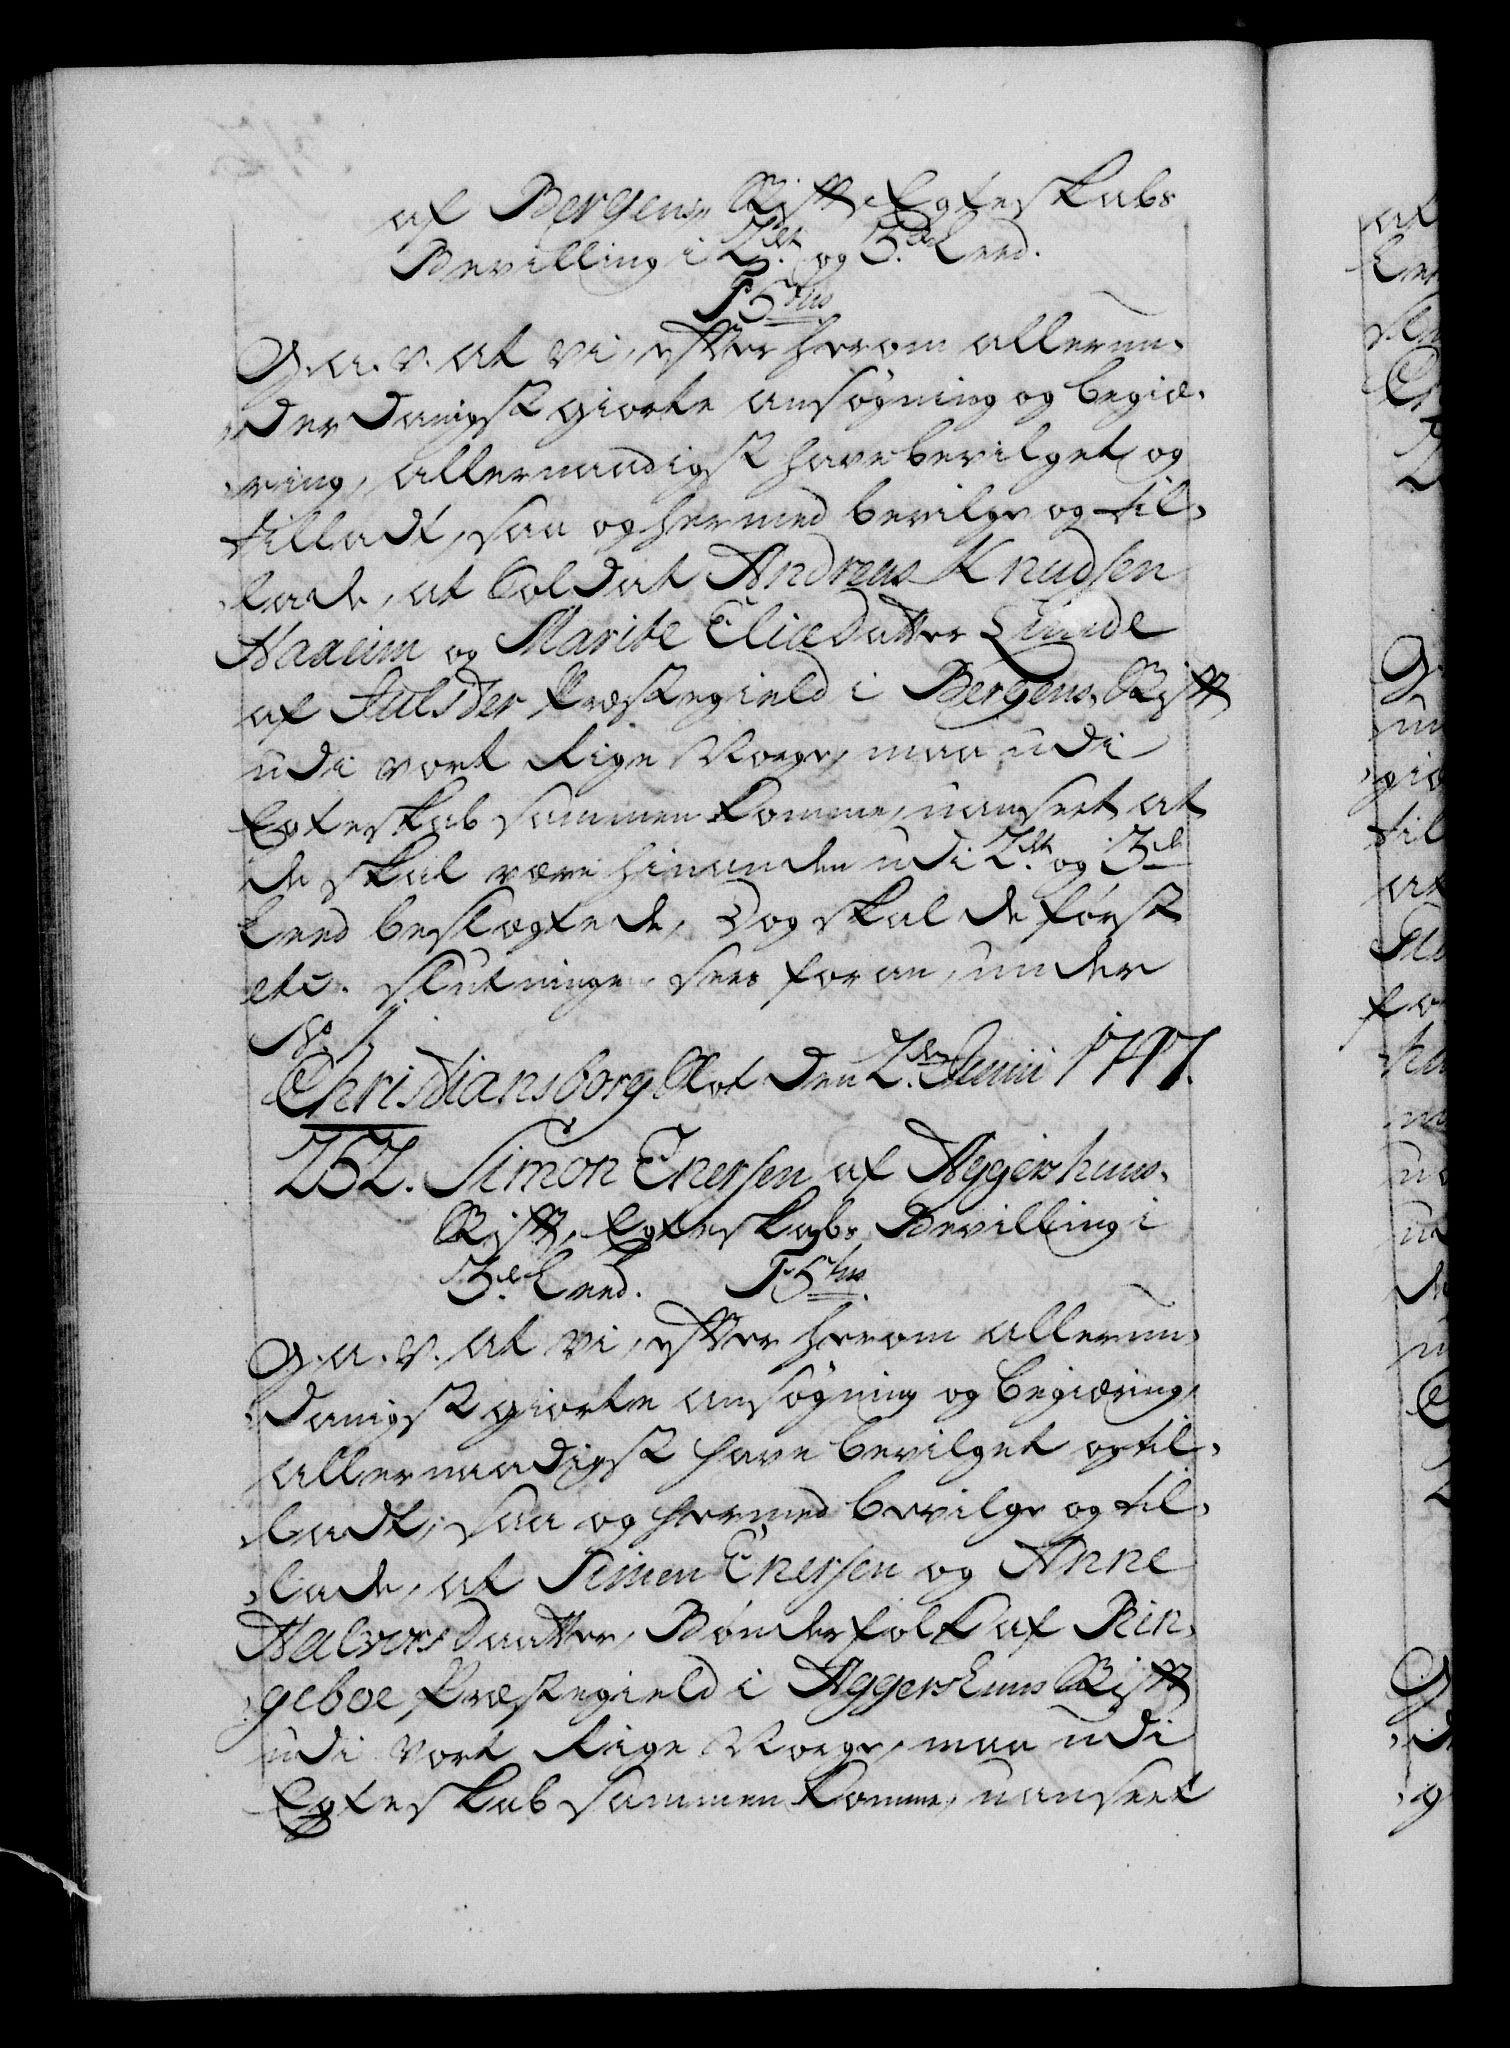 af Bergens Stift Egteskabs
Bevilling i 2det og 3die Leed.
P 5 mus
G. a. v. at vi, efter herom allerun-
derdanigst giorte ansøgning og begiæ-
ring, allernaadigst have bevilget og
tilladt, saa og hermed bevilge og til-
lade, at Soldat Andreas Knudsen
Naaeim og Marite Eliædatter Lunde
af Julster Præstegield i Bergens Stift
udi vort Rige Norge, maa udi
Egteskab sammen komme, uanseet at
de skal være hinanden udi 2det og 3die
Leed beslægtede, Dog skal de først
etc. Slutningen sees foran, under
No. 1.
Christiansborg Slot den 2den Junii 1747.
252. Simon Enersen af Aggershuus-
Stift, Egteskabs Bevilling i
3die Leed. P 5 mus.
G. a. v. at vi, efter herom allerun-
danigst giorte ansøgning og begiæring,
allernaadigst have bevilget og til-
ladt, saa og hermed bevilge og til-
lade, at Simen Enersen og Anne
Halvorsdaatter, Bønderfolk af Rin-
geboe Præstegield i Aggershuus Stift
udi vort Rige Norge, maa udi
Egteskab sammen komme, uanseet